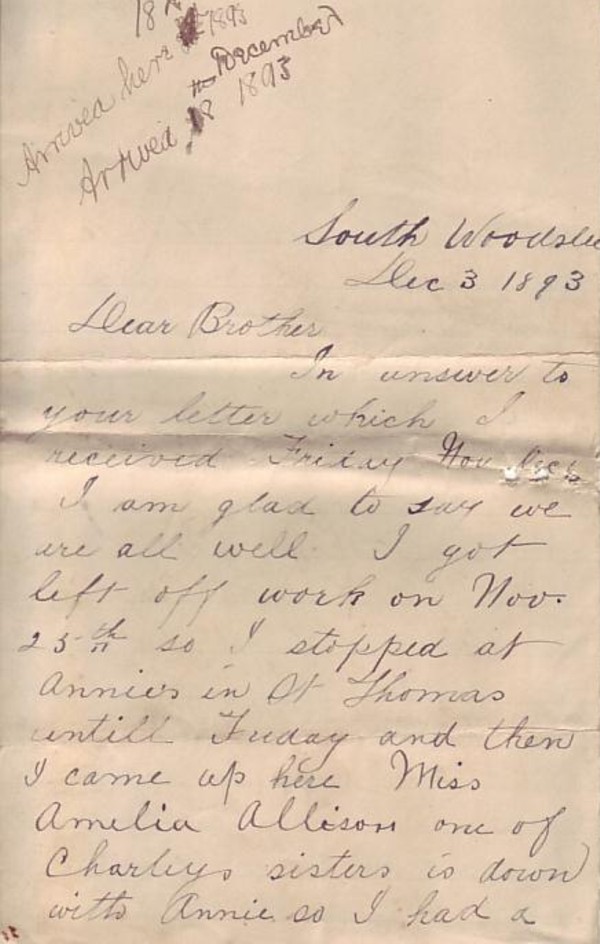 18
1893
Arrived here
December
Arrived 18 1893
South Woodslee
Dec 3 1893
Dear Brother
In answer to
your letter which I
received Friday Nov
I am glad to say we
are all well I got
left off work on Nov.
25th so I stopped at
Annies in St Thomas
untill Friday and then
I came up here Miss
Amelia Allison one of
Charleys sisters is down
with Annie so I had a